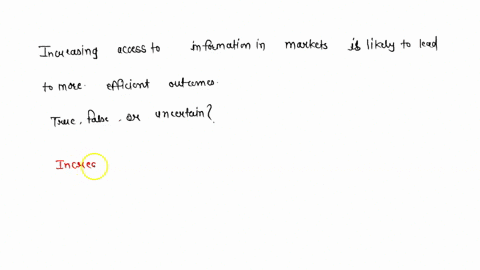 Increasing access to information in markets is likely to lead
to more. efficient outcomes.
True, false, or uncertain?
Increc